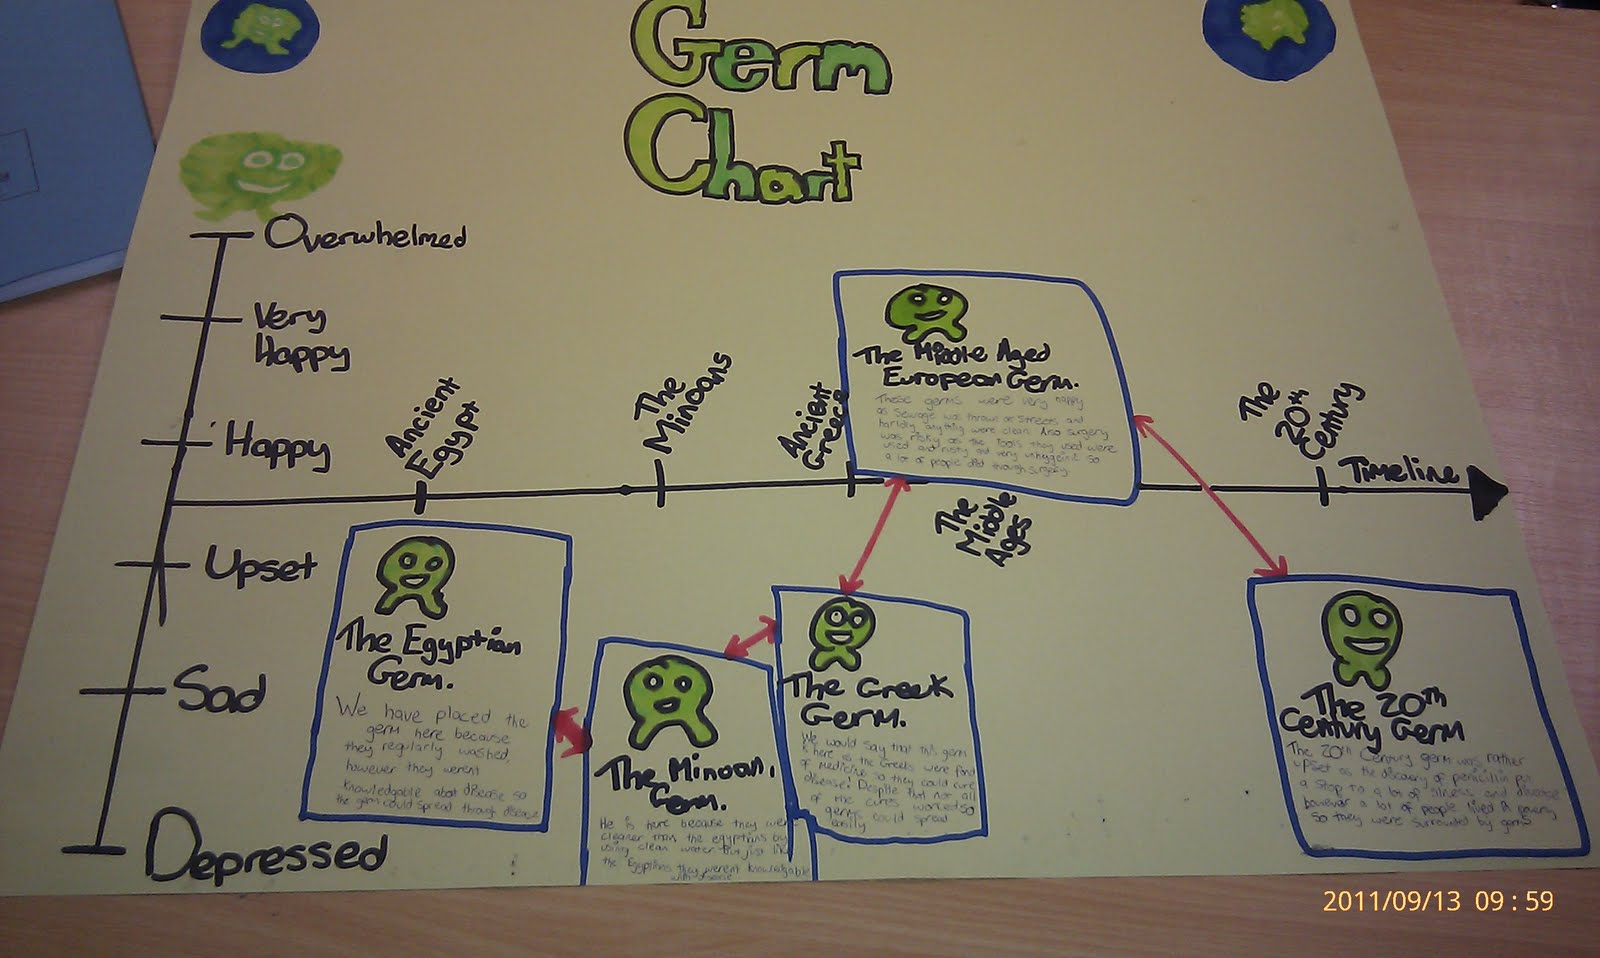 Germ
Chart
Overwhelmed
Very
Happy
Happy
Upset
Sad
Depressed
Ancient
Egypt
The
Minoans
Ancient
Greece
The
Middle
Ages
The
20th
Century
Timeline
The Egyptian
Germ.
We have placed the
germ here because
they regularly washed,
however they werent
knowledgable about disease so
the germ could spread through disease
The Minoan.
Germ.
He is here because they wer
cleaner than the egyptians by
using clean water but just like
the Egyptians they werent knowledgable
with disease
The Greek
Germ.
We would say that this germ
is here as the Greeks were fond
of medicine so they could cure
disease! Despite that not all
of the cures worked so
germs could spread
easily
The Middle Aged
European Germ.
These germs were very happy
as sewage was thrown on streets and
hardly anything were clean. Also surgery
was risky as the tools they used were
used and rusty and very
a lot of people died through surgery
The 20th
Century Germ
The 20th Century germ was rather
upset as the discovery of penicillin put
a stop to a lot of illness and disease
however a lot of people lived in poverty
so they were surrounded by germs
2011/09/13 09:59